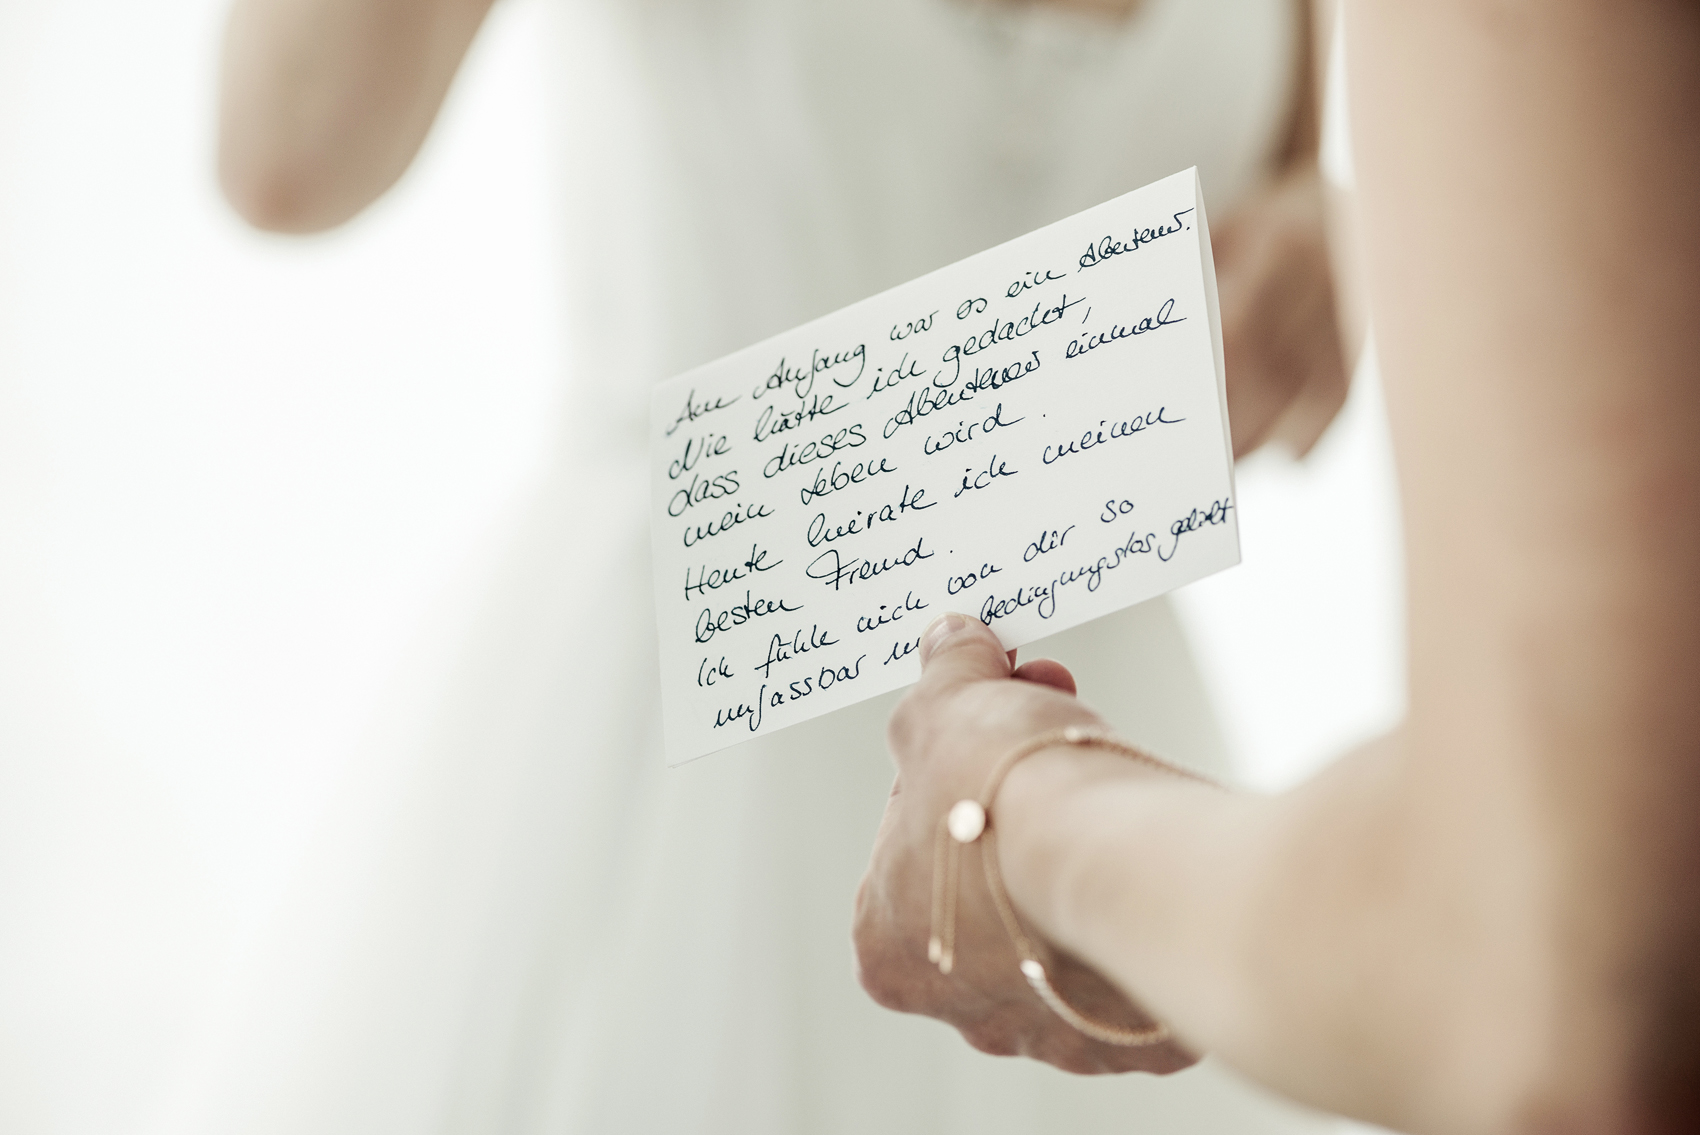 Am Anfang war es ein Abenteuer.
Nie hätte ich gedacht,
dass dieses Abenteuer einmal
mein Leben wird.
Heute heirate ich meinen
besten Freund.
Ich fühle mich von dir so
unfassbar bedingungslos geliebt